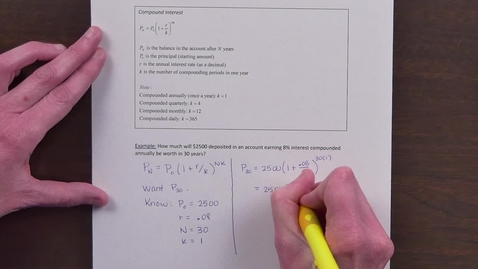 Compound Interest
P_N = P_0 (1 + r/k)^{Nk}
P_N is the balance in the account after N years
P_0 is the principal (starting amount)
r is the annual interest rate (as a decimal)
k is the number of compounding periods in one year
Note:
Compounded annually (once a year): k = 1
Compounded quarterly: k = 4
Compounded monthly: k = 12
Compounded daily: k = 365
Example: How much will $2500 deposited in an account earning 8% interest compounded
annually be worth in 30 years?
P_N = P_0 (1 + r/k)^{Nk}
Want P_30.
Know: P_0 = 2500
r = .08
N = 30
k = 1
P_30 = 2500(1 + .08
30(1)
= 250